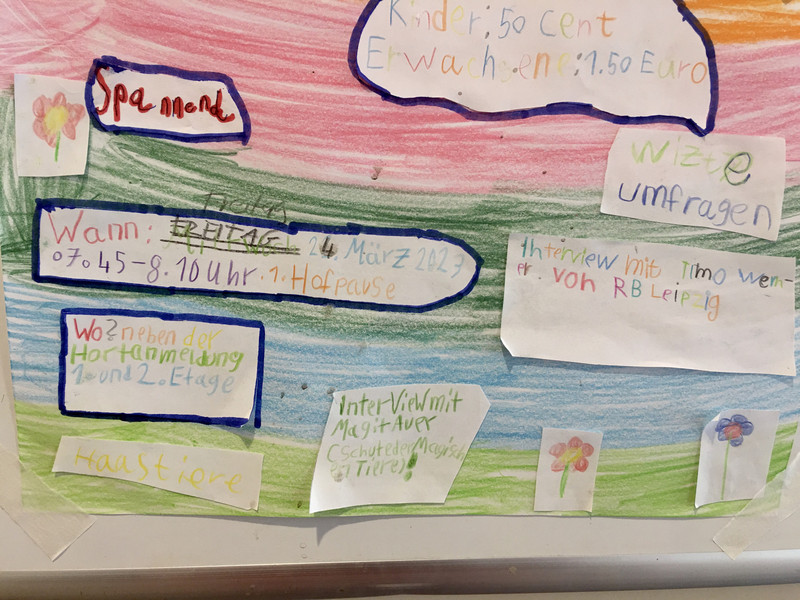 Kinder: 50 Cent
Erwachsene: 1.50 Euro
Spannend
Wizte
umfragen
Freitag
Wann: FREITAG 24 März 2023
07.45-8.10 Uhr. 1. Hofpause
Interview mit Timo Wern-
er. von RB Leipzig
Wo? neben der
Hortanmeldung
1. und 2. Etage
InterView mit
Magit Auer
(Schule der Magisch
en Tiere)!
Haustiere